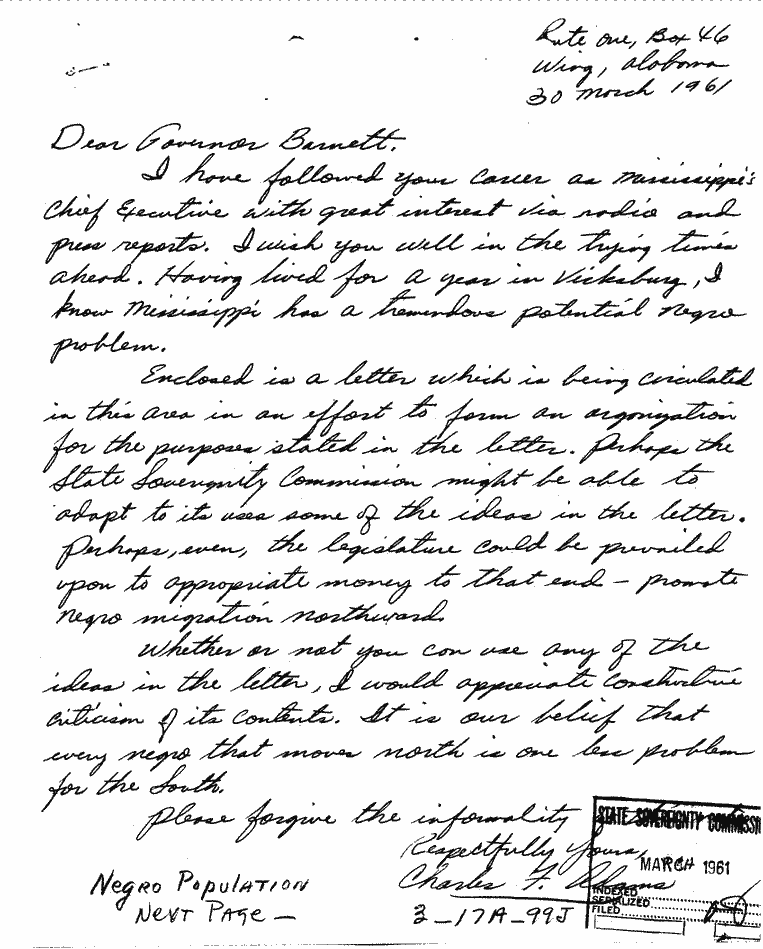 Rute one, Box 46
Wing, Alabama
30 March 1961
Dear Governor Barnett.
I have followed your career as Mississippi's
Chief Executive with great interest via radio and
press reports. I wish you well in the trying times
ahead. Having lived for a year in Vicksburg, I
know Mississippi has a tremendous potential negro
problem.
Enclosed is a letter which is being circulated
in this area in an effort to form an organization
for the purposes stated in the letter. Perhaps the
State Sovereignity Commission might be able to
adapt to its uses some of the ideas in the letter.
Perhaps, even, the legislature could be prevailed
upon to appropriate money to that end - promote
negro migration northward.
Whether or not you can use any of the
ideas in the letter, I would appreciate constructive
criticism of its contents. It is our belief that
every negro that moves north is one less problem
for the South.
Please forgive the informality
STATE SOVEREIGNTY COMMISSI
Respectfully Yours,
MARCH 1961
Charles F. Adams
INDEXED
SERIALIZED
FILED
Negro Population
Next Page -
3-17A-99J